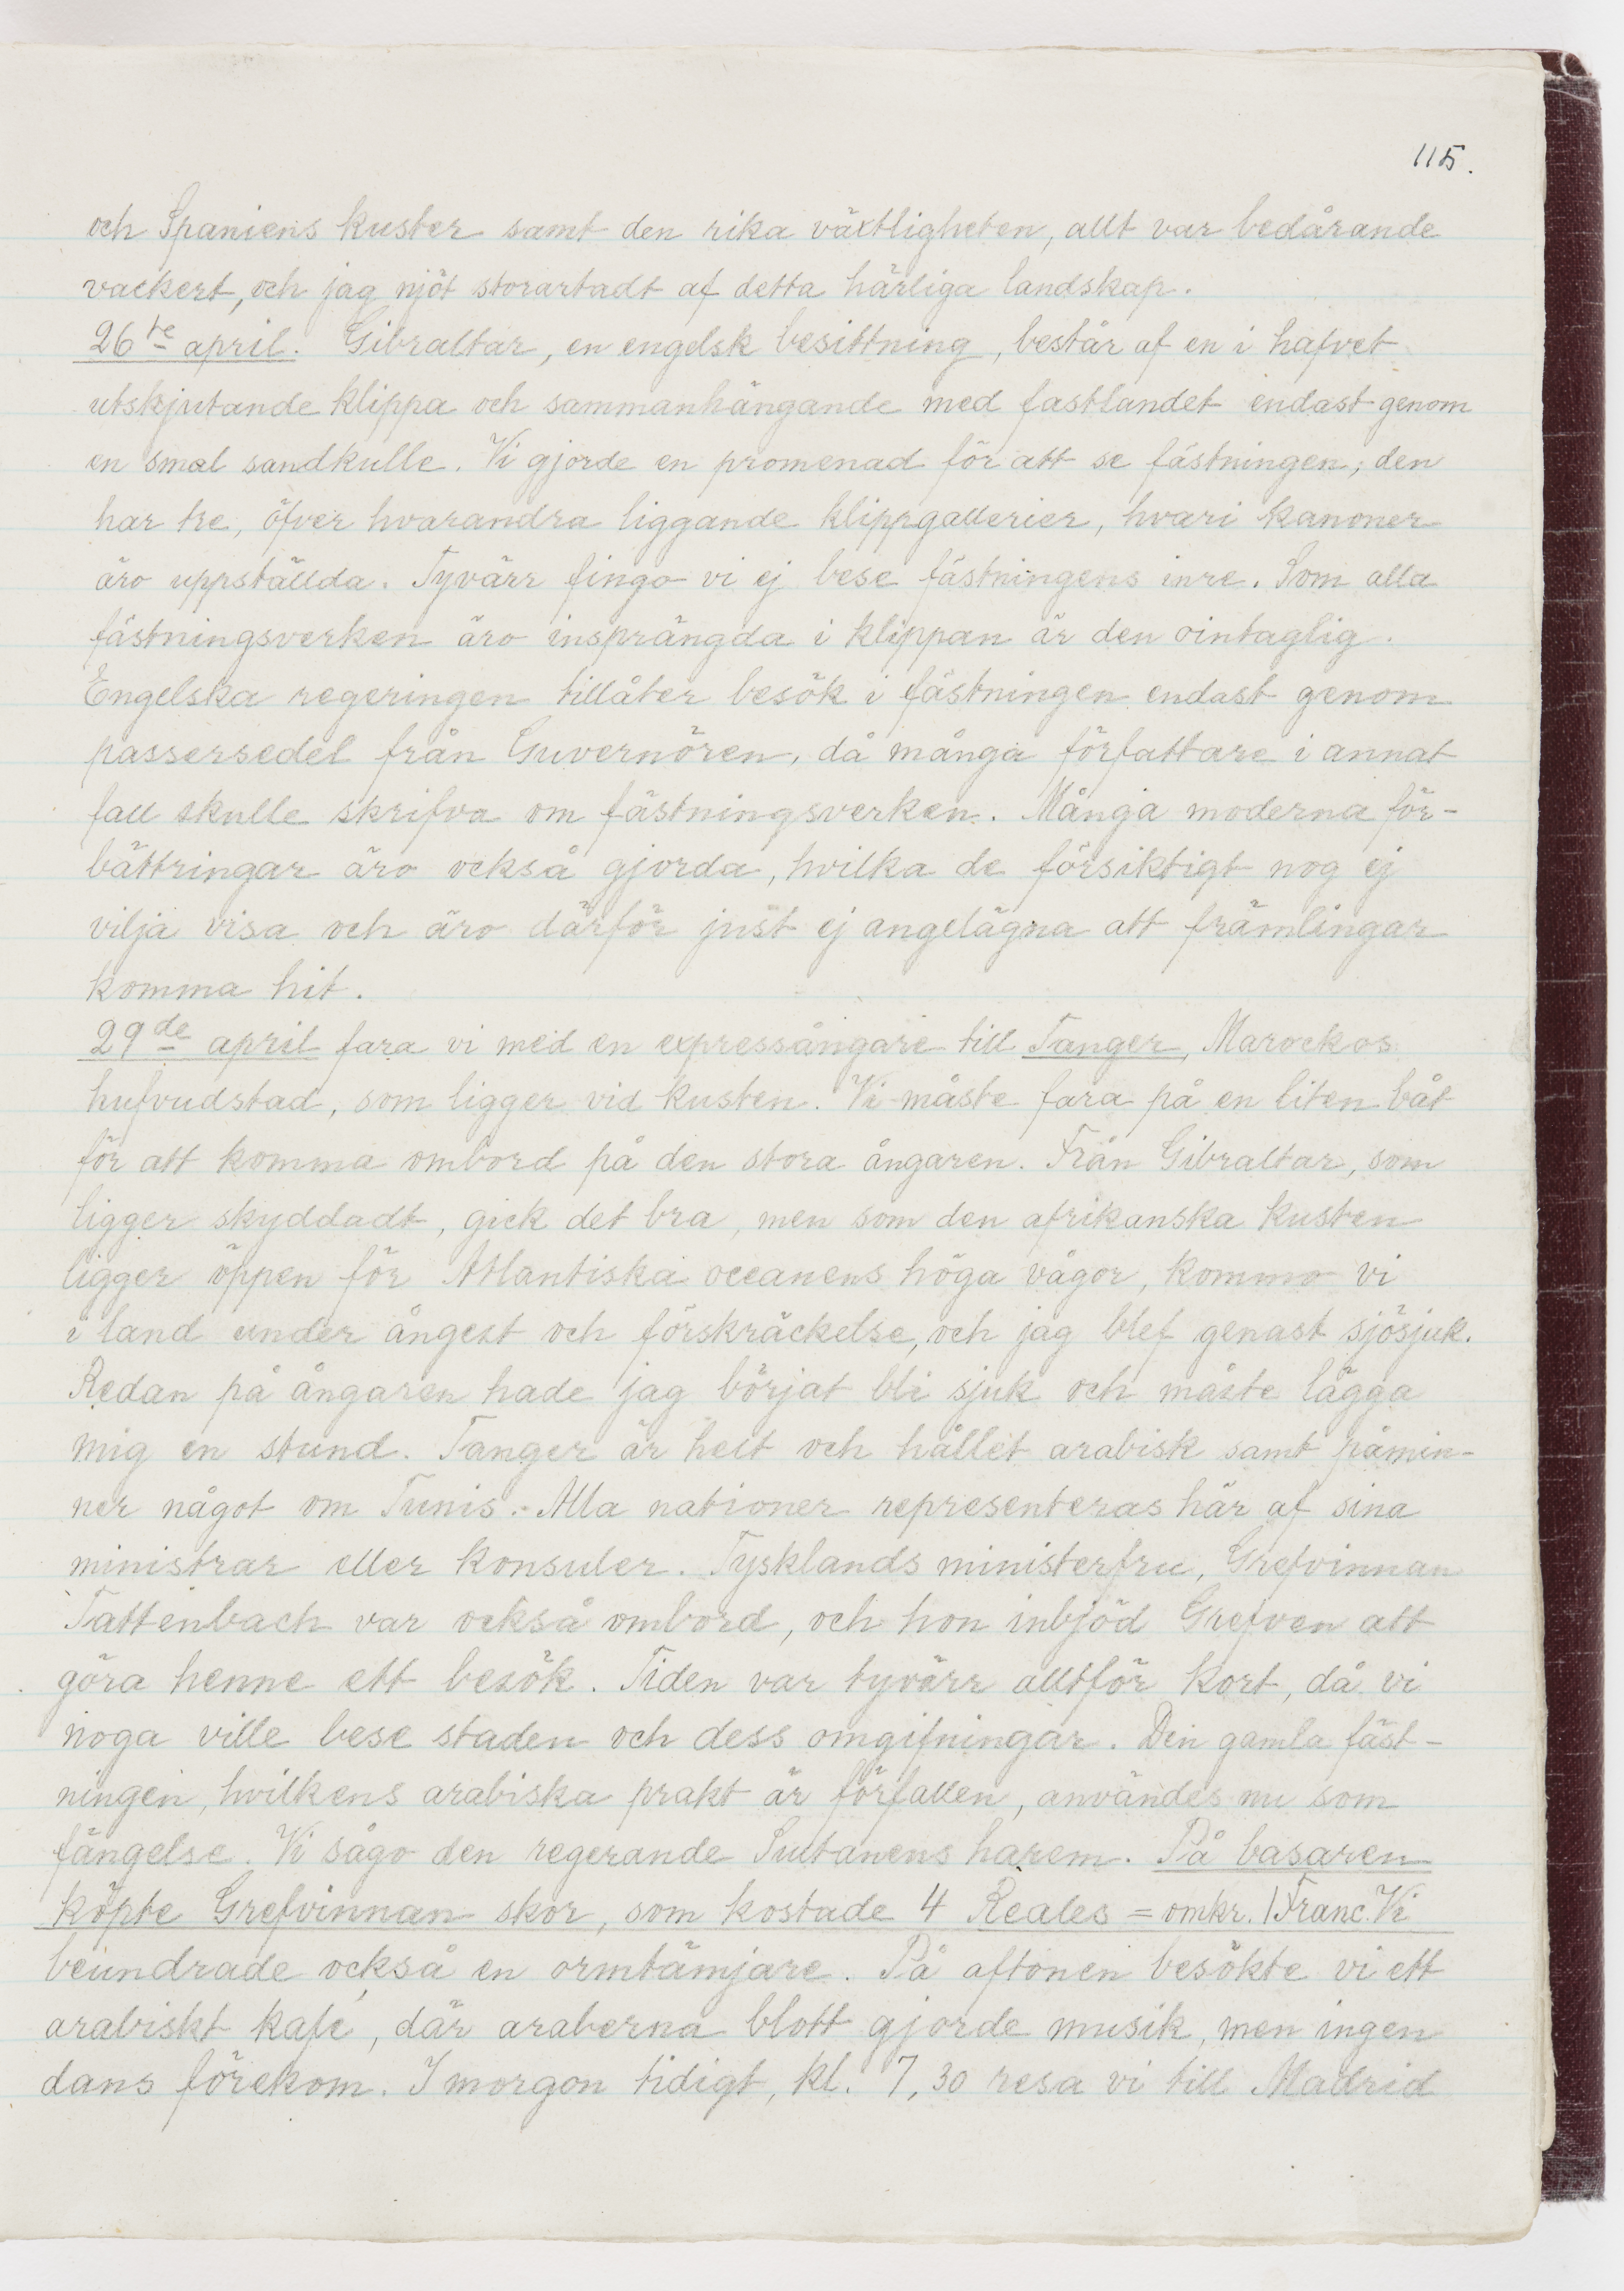 115.
och Spaniens kuster samt den rika växtligheten, allt var bedårande
vackert, och jag njöt storartadt af detta härliga landskap.
26te april. Gibraltar, en engelsk besittning, består af en i hafvet
utskjutande klippa och sammanhängande med fastlandet endast genom
en smal sandkulle. Vi gjorde en promenad för att se fästningen; den
har tre, öfver hvarandra liggande klippgallerier, hvari kanoner
äro uppställda. Tyvärr fingo vi ej bese fästningens inre. Som alla
fästningsverken äro insprängda i klippan är den ointaglig.
Engelska regeringen tillåter besök i fästningen endast genom
passersedel från Guvernören, då många författare i annat
fall skulle skrifva om fästningsverken. Många moderna för-
bättringar äro också gjorda, hvilka de försiktigt nog ej
vilja visa och äro därför just ej angelägna att främlingar
komma hit.
29de april fara vi med en expressångare till Tanger, Marockos
hufvudstad, som ligger vid kusten. Vi måste fara på en liten båt
för att komma ombord på den stora ångaren. Från Gibraltar, som
ligger skyddadt, gick det bra, men som den afrikanska kusten
ligger öppen för Atlantiska oceanens höga vågor, kommo vi
i land under ångest och förskräckelse, och jag blef genast sjösjuk.
Redan på ångaren hade jag börjat bli sjuk och måste lägga
mig en stund. Tanger är helt och hållet arabisk samt påmin-
ner något om Tunis. Alla nationer representeras här af sina
ministrar eller konsuler. Tysklands ministerfru, Grefvinnan
Tattenbach var också ombord, och hon inbjöd Grefven att
göra henne ett besök. Tiden var tyvärr alltför kort, då vi
noga ville bese staden och dess omgifningar. Den gamla fäst-
ningen, hvilkens arabiska prakt är förfallen, användes nu som
fängelse. Vi sågo den regerande Sultanens harem. På basaren
köpte Grefvinnan skor, som kostade 4 Reales = omkr. 1 Franc. Vi
beundrade också en ormtämjare. På aftonen besökte vi ett
arabiskt kafé, där araberna blott gjorde musik, men ingen
dans förekom. I morgon tidigt, kl. 7,30 resa vi till Madrid